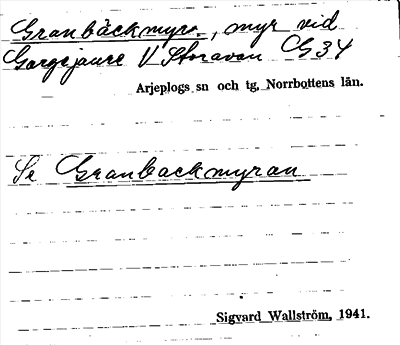 Granbäckmyr., myr vid
Gargejaure V Storavan G34
Arjeplogs sn och tg, Norrbottens län.
Se Granbackmyran
Sigvard Wallström, 1941.